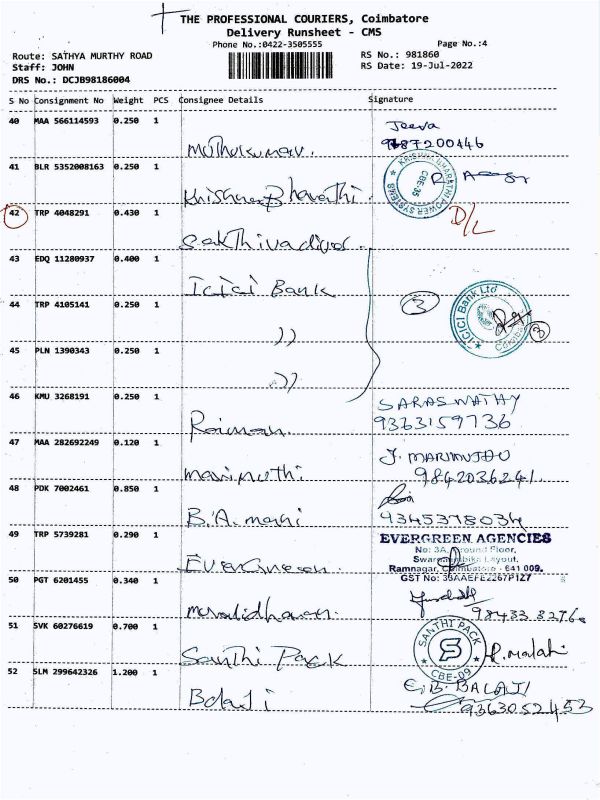 THE PROFESSIONAL COURIERS, Coimbatore
Delivery Runsheet - CMS
Phone No.:0422-3505555
Page No.:4
Route: SATHYA MURTHY ROAD
RS No.: 981860
Staff: JOHN
RS Date: 19-Jul-2022
DRS No.: DCJB98186004
S No Consignment No Weight PCS Consignee Details Signature
40 MAA 566114593 0.250 1
Jeeva
Muthukumar.
9687200446
41 BLR 5352008163 0.250 1
KRISHNABHARATHI POWER SYSTEMS
CBE-35
Krishna Bharathi.
42 TRP 4048291 0.430 1
D/L
Sakthivadivel.
43 EDQ 11280937 0.400 1
Icici Bank
44 TRP 4105141 0.250 1
3
ICICI Bank Ltd
3
))
45 PLN 1390343 0.250 1
))
46 KMU 3268191 0.250 1
SARASWATHY
Raiman
9363159736
47 MAA 282692249 0.120 1
J. MARIMUTHU
marimuthi
9842036241.
48 PDK 7002461 0.850 1
B.A. mani
9345378034
49 TRP 5739281 0.290 1
EVERGREEN AGENCIES
No: 3A, Ground Floor,
Swarnambika Layout,
Evergreen.
Ramnagar, Coimbatore - 641 009.
50 PGT 6201455 0.340 1
GST No: 33AAEFE2267P1Z7
Muralidharan.
51 SVK 60276619 0.700 1
SANTHI PACK
S
CBE-09
Santhi Pack
P. Malathi
52 SLM 299642326 1.200 1
E.B. BALAJI
Balaji
9363052453